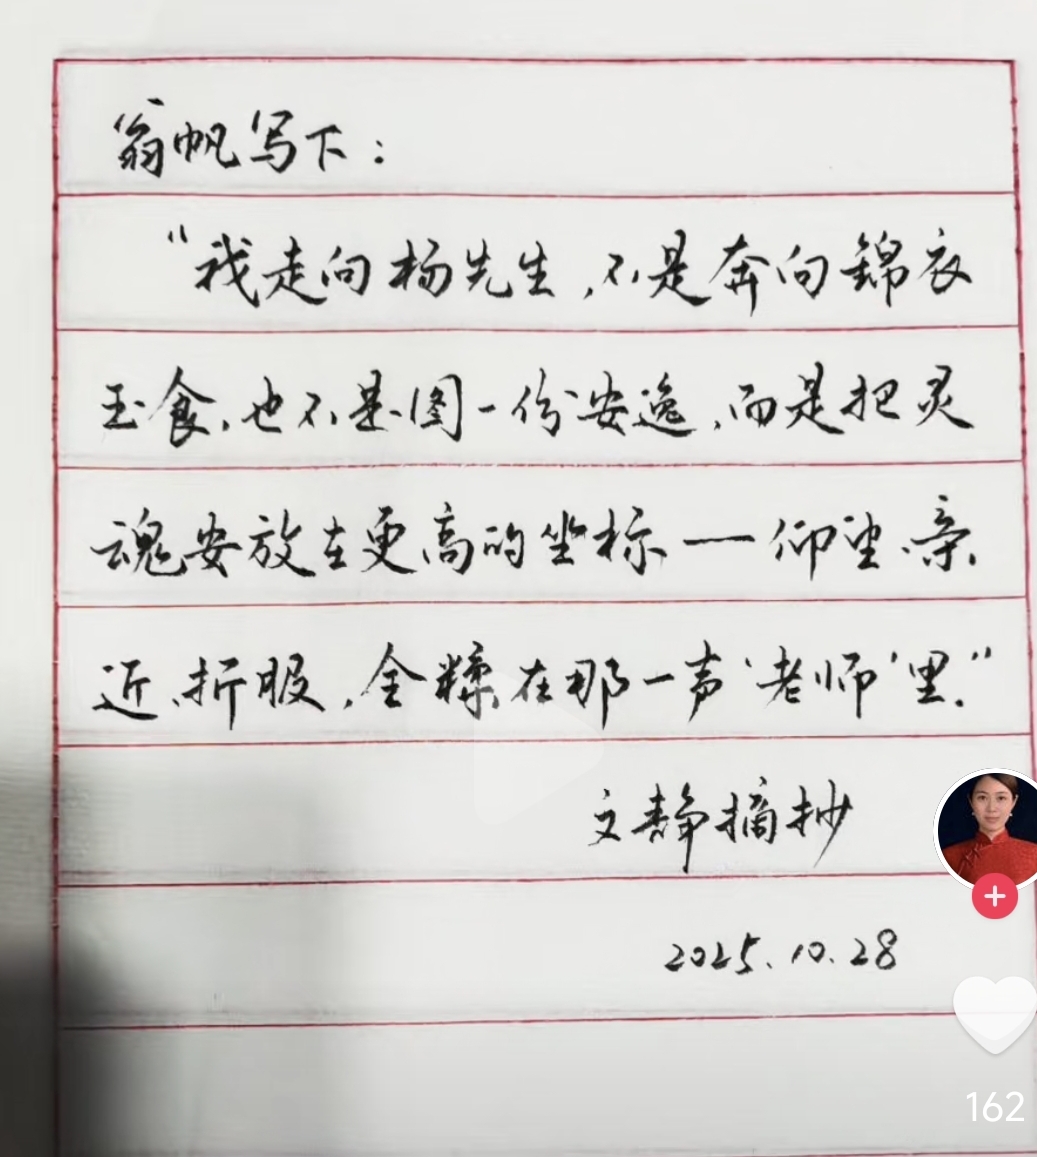 翁帆写下：
“我走向杨先生，不是奔向錦衣
玉食，也不是图一份安逸，而是把灵
魂安放在更高的坐标—仰望、亲
近、折服，全糅在那一声‘老师’里.”
文静摘抄
2025.10.28
162